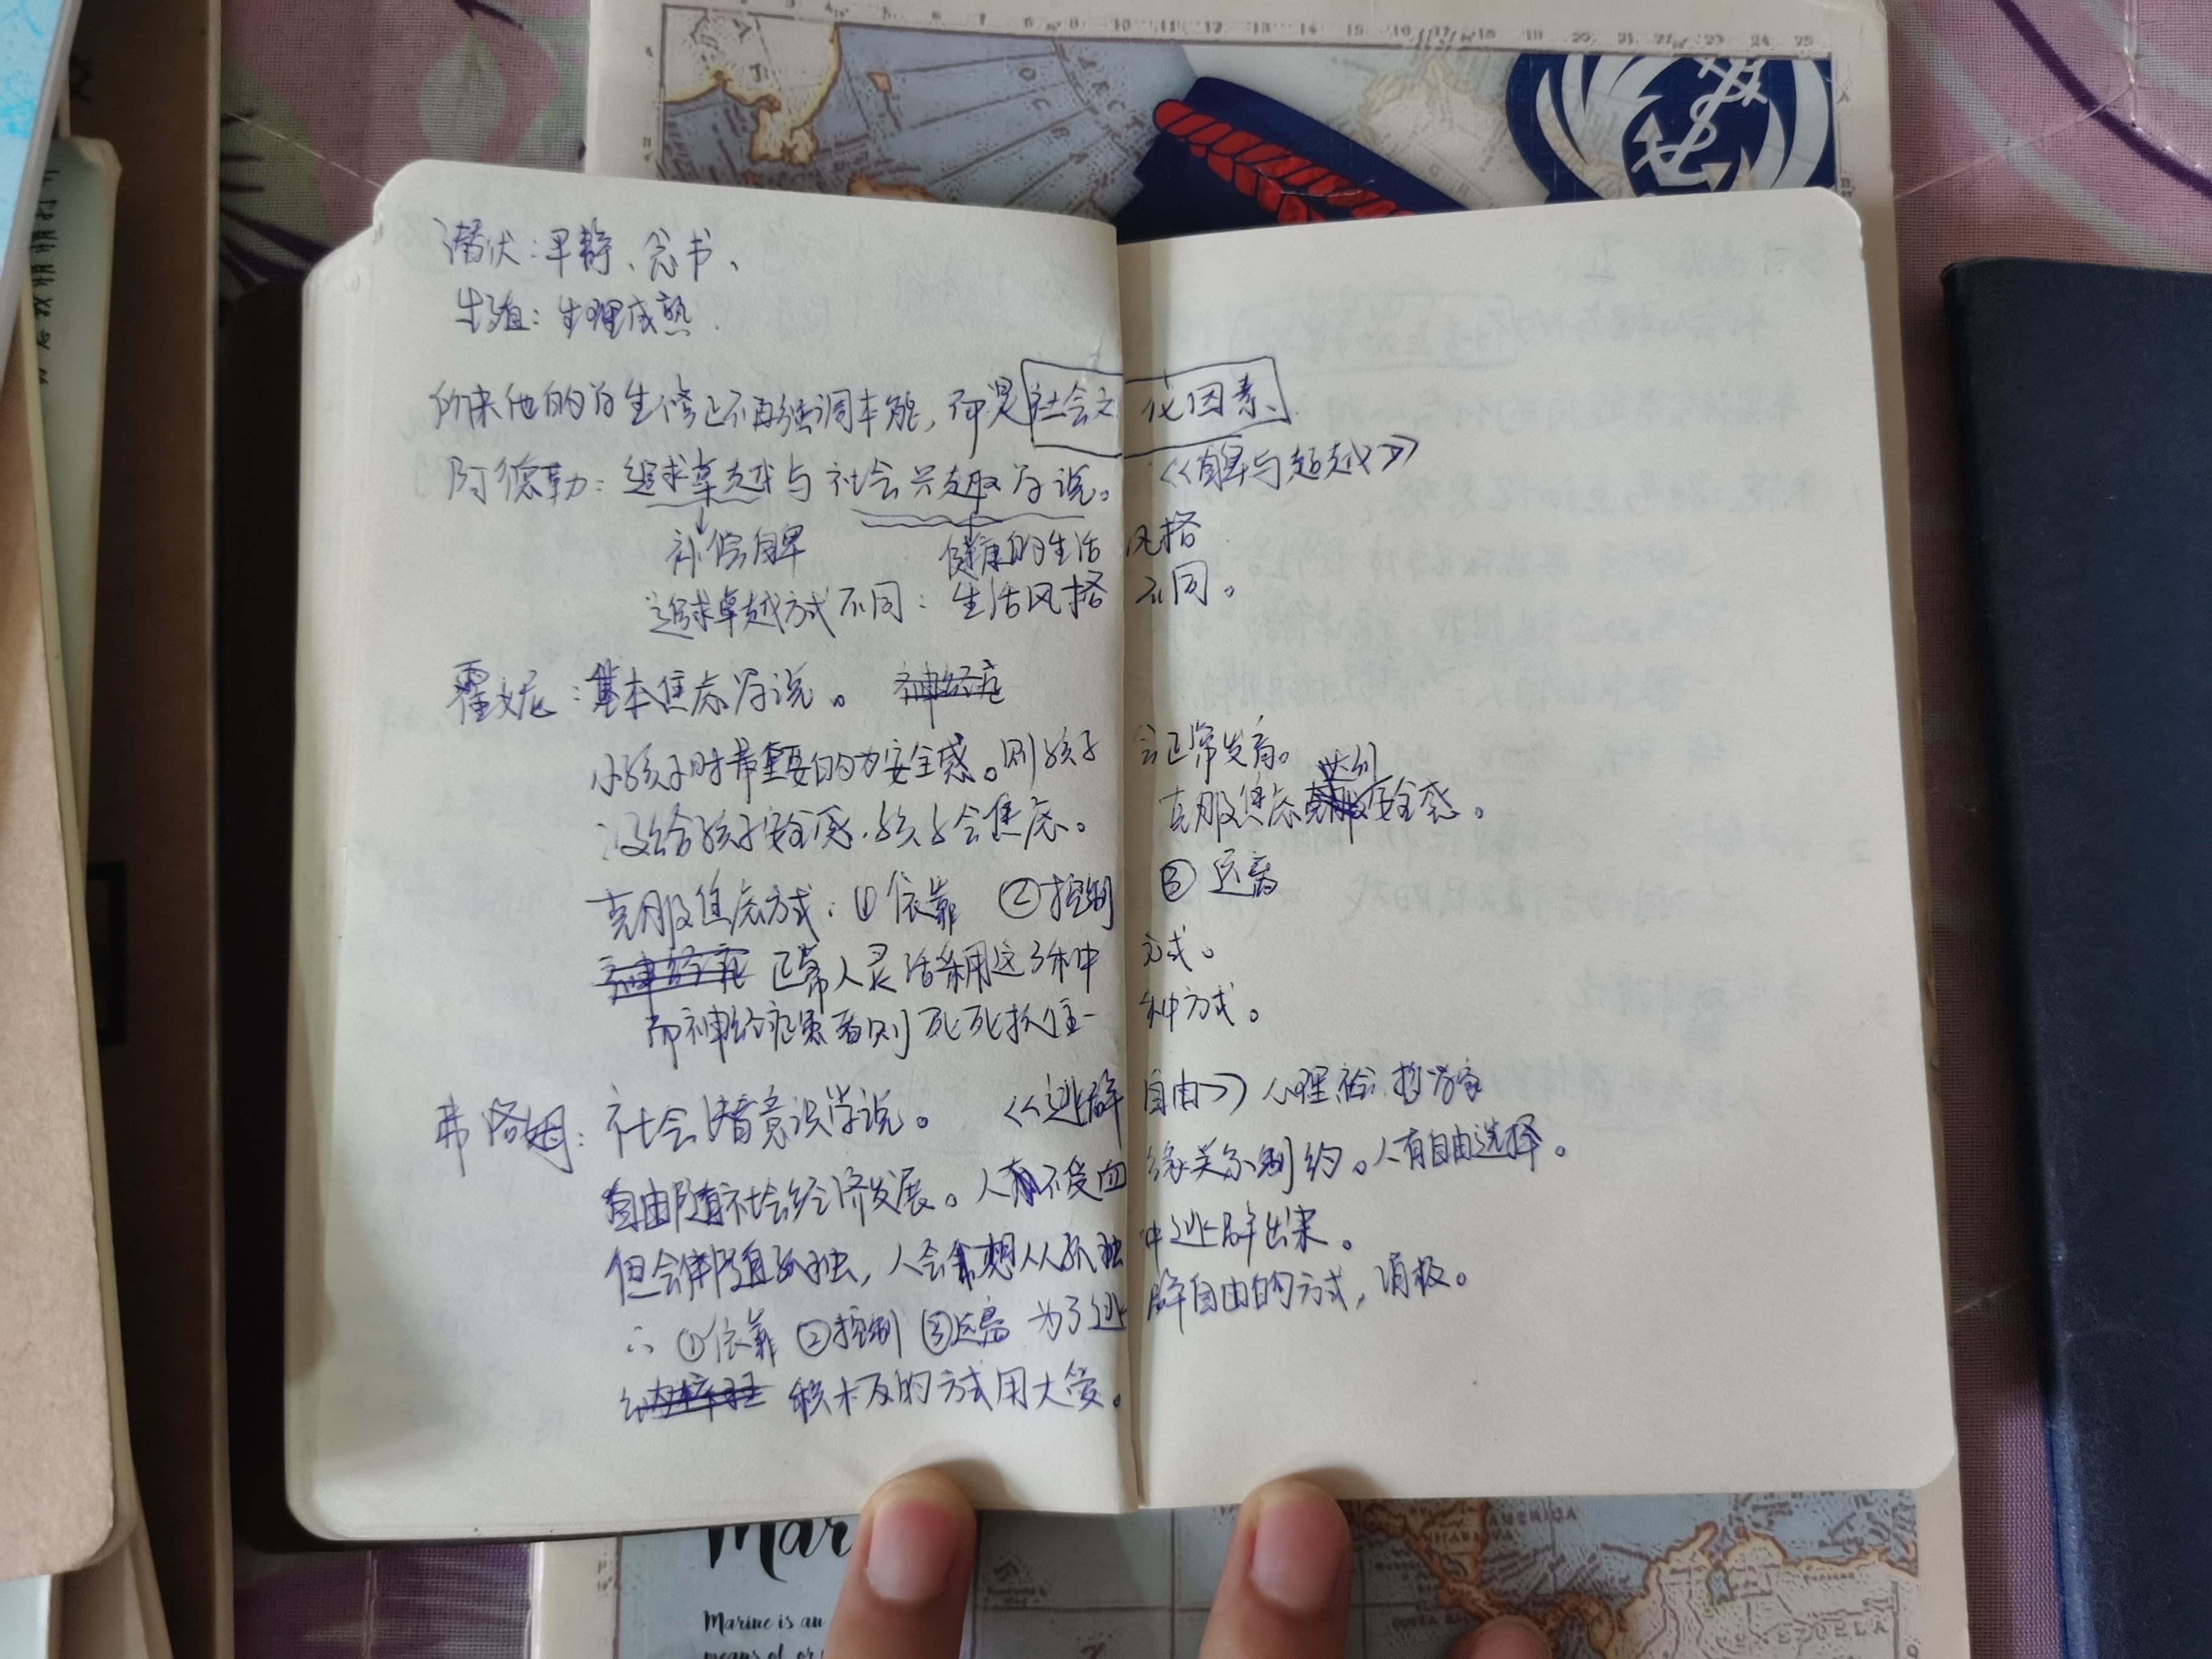 潜伏：平静、念书、
生殖：生理成熟.
后来他的学生修正不再强调本能，而是社会文化因素、
阿德勒：追求卓越与社会兴趣学说。 《自卑与超越》
补偿自卑 健康的生活风格
追求卓越方式不同：生活风格不同。
霍妮：基本焦虑学说。
小孩子时最重要的为安全感。则孩子会正常发育。
没给孩子安全感，孩子会焦虑。 克服焦虑达到安全感。
克服焦虑方式：①依靠 ②控制 ③远离
正常人灵活采用这3种方式。
而神经症患者则死死抓住一种方式。
弗洛姆：社会潜意识学说。 《逃避自由》心理 哲学家
自由随社会经济发展。人不受血缘关系制约。人有自由选择。
但会伴随孤独，人会想从孤独中逃避出来。
∴ ①依靠 ②控制 ③远离 为了逃避自由的方式，消极。
积极的方式用大爱。
Mar
Marine is an
means of or
AMERICA